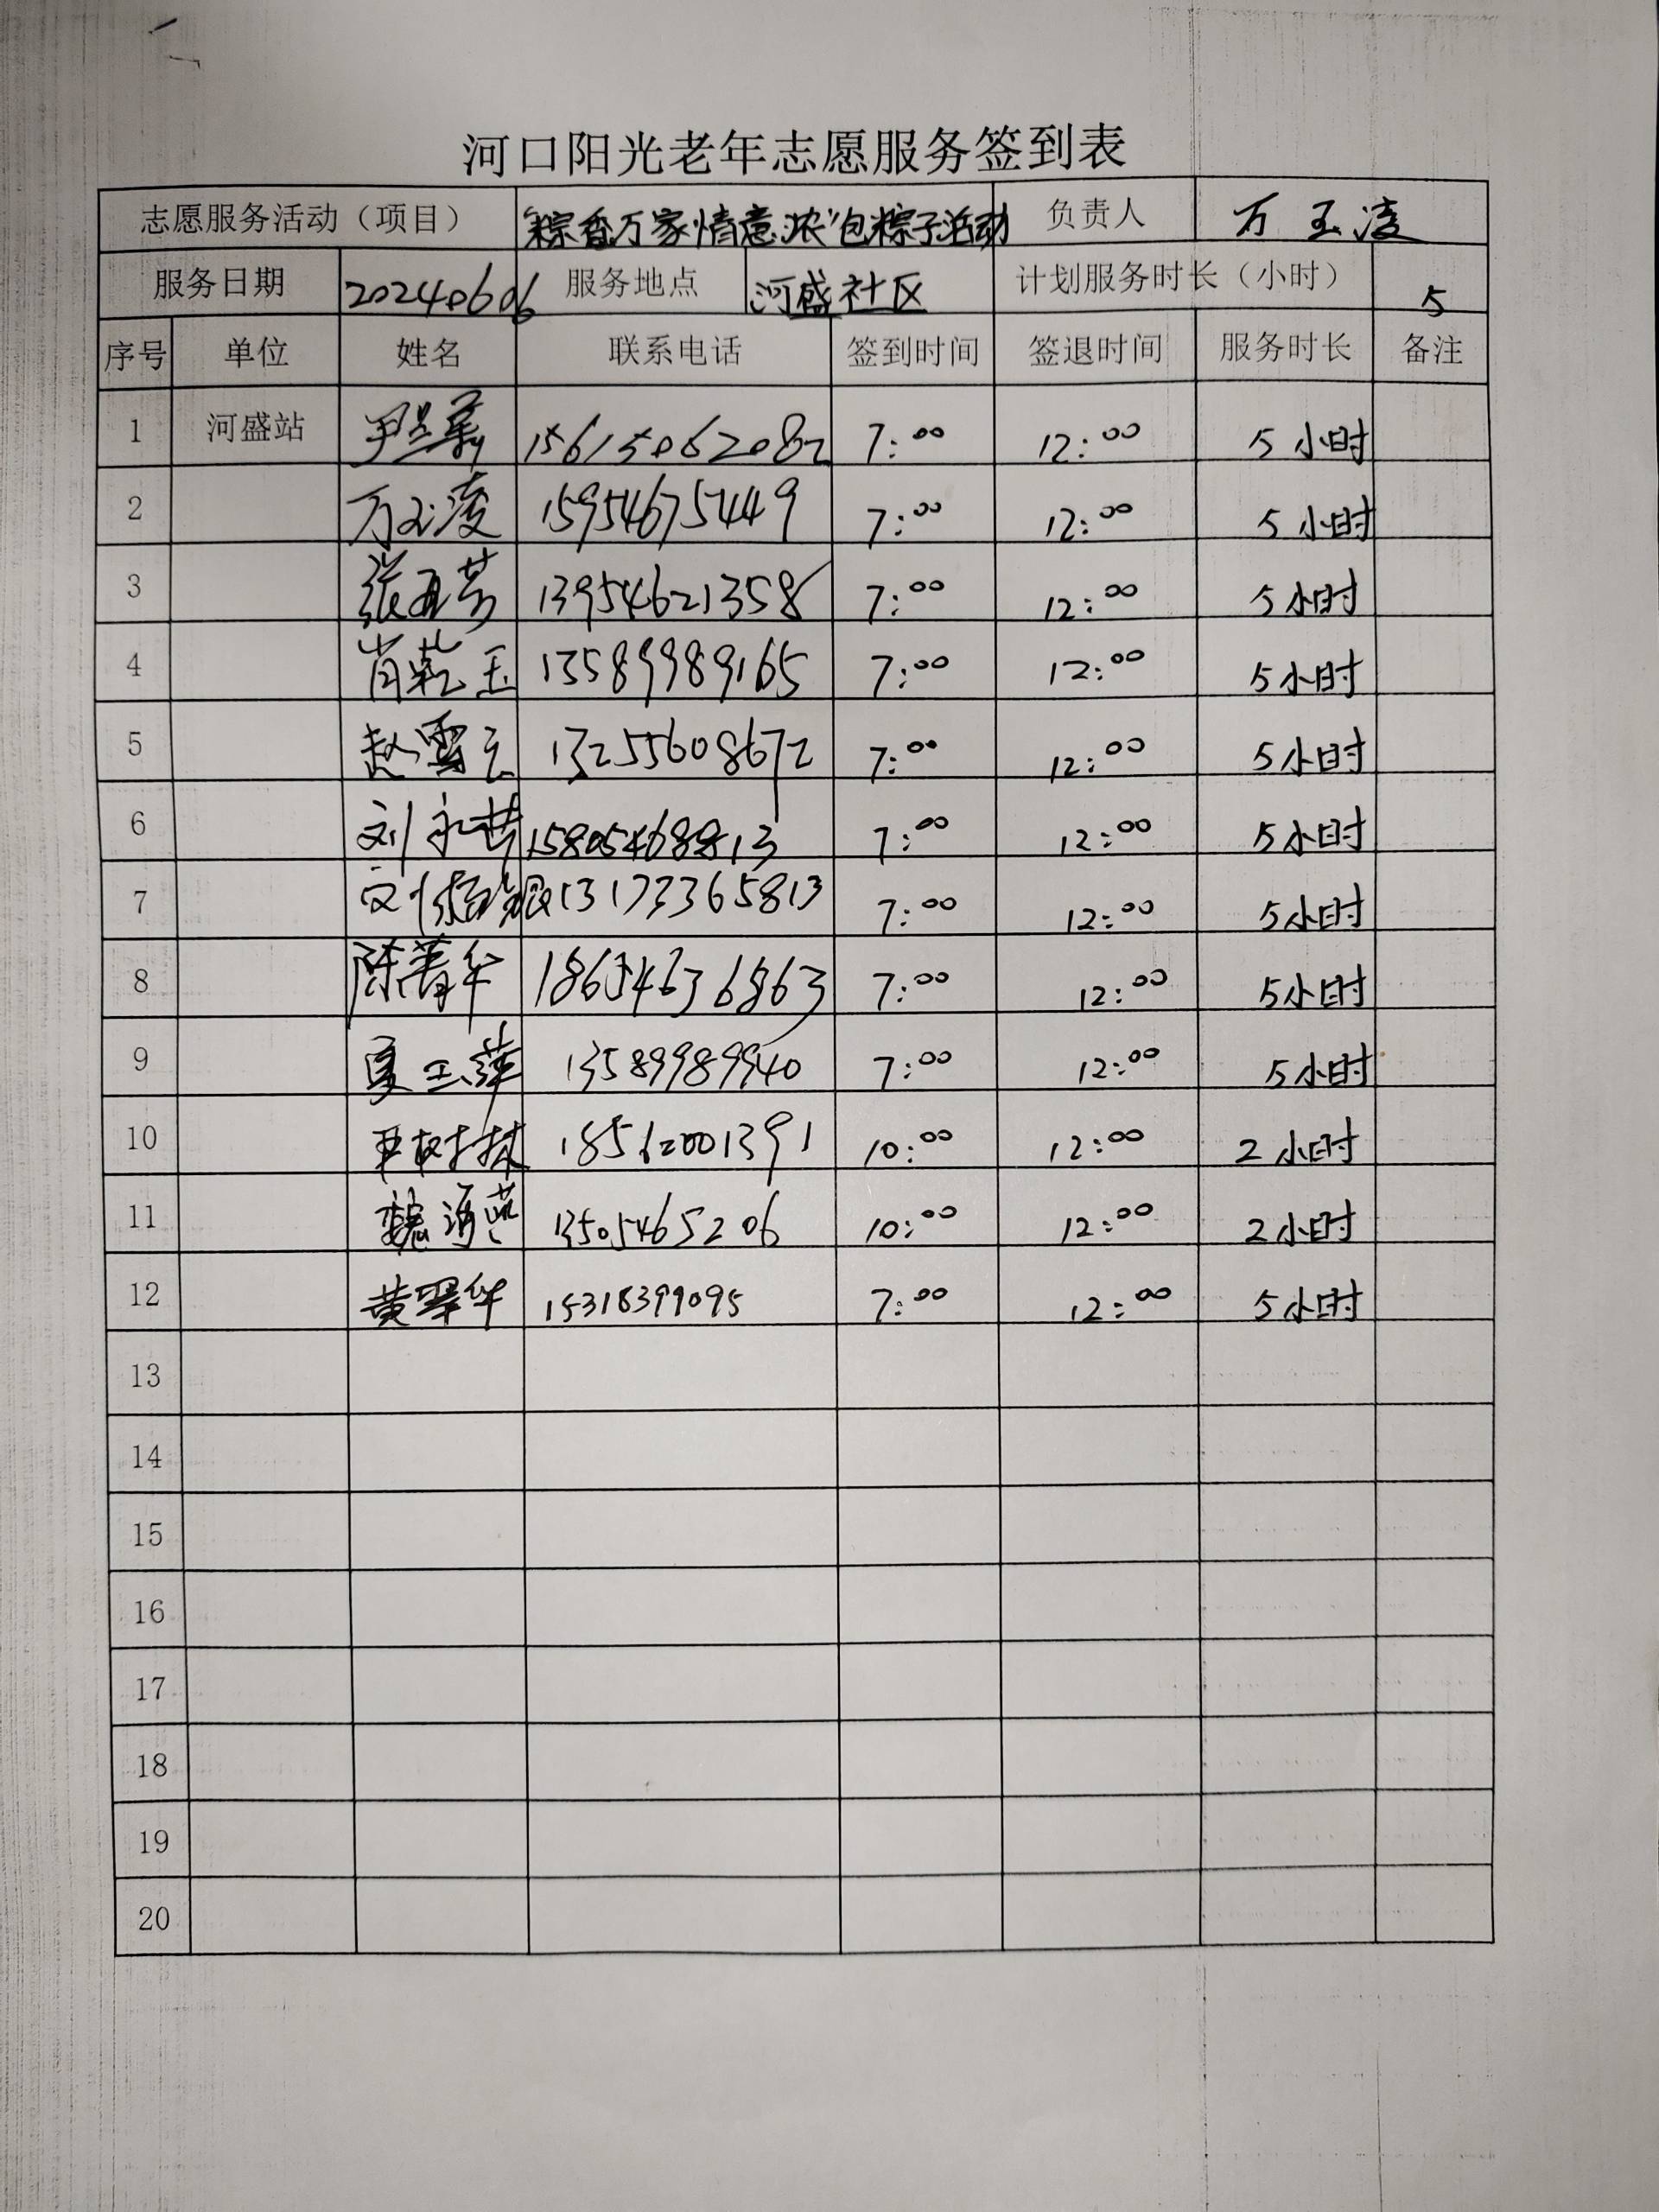 河口阳光老年志愿服务签到表
志愿服务活动（项目） “粽香万家情意浓”包粽子活动 负责人 万玉凌
服务日期 20240606 服务地点 河盛社区 计划服务时长（小时） 5
序号 单位 姓名 联系电话 签到时间 签退时间 服务时长 备注
1 河盛站 15615062082 7:00 12:00 5小时
2 万玉凌 15954675449 7:00 12:00 5小时
3 13954621358 7:00 12:00 5小时
4 肖乾玉 13589989165 7:00 12:00 5小时
5 赵雪云 13255608672 7:00 12:00 5小时
6 15805468813 7:00 12:00 5小时
7 13173365813 7:00 12:00 5小时
8 陈菁华 18654636863 7:00 12:00 5小时
9 夏玉萍 13589989940 7:00 12:00 5小时
10 18562001391 10:00 12:00 2小时
11 13505465206 10:00 12:00 2小时
12 黄翠华 15318399095 7:00 12:00 5小时
13
14
15
16
17
18
19
20